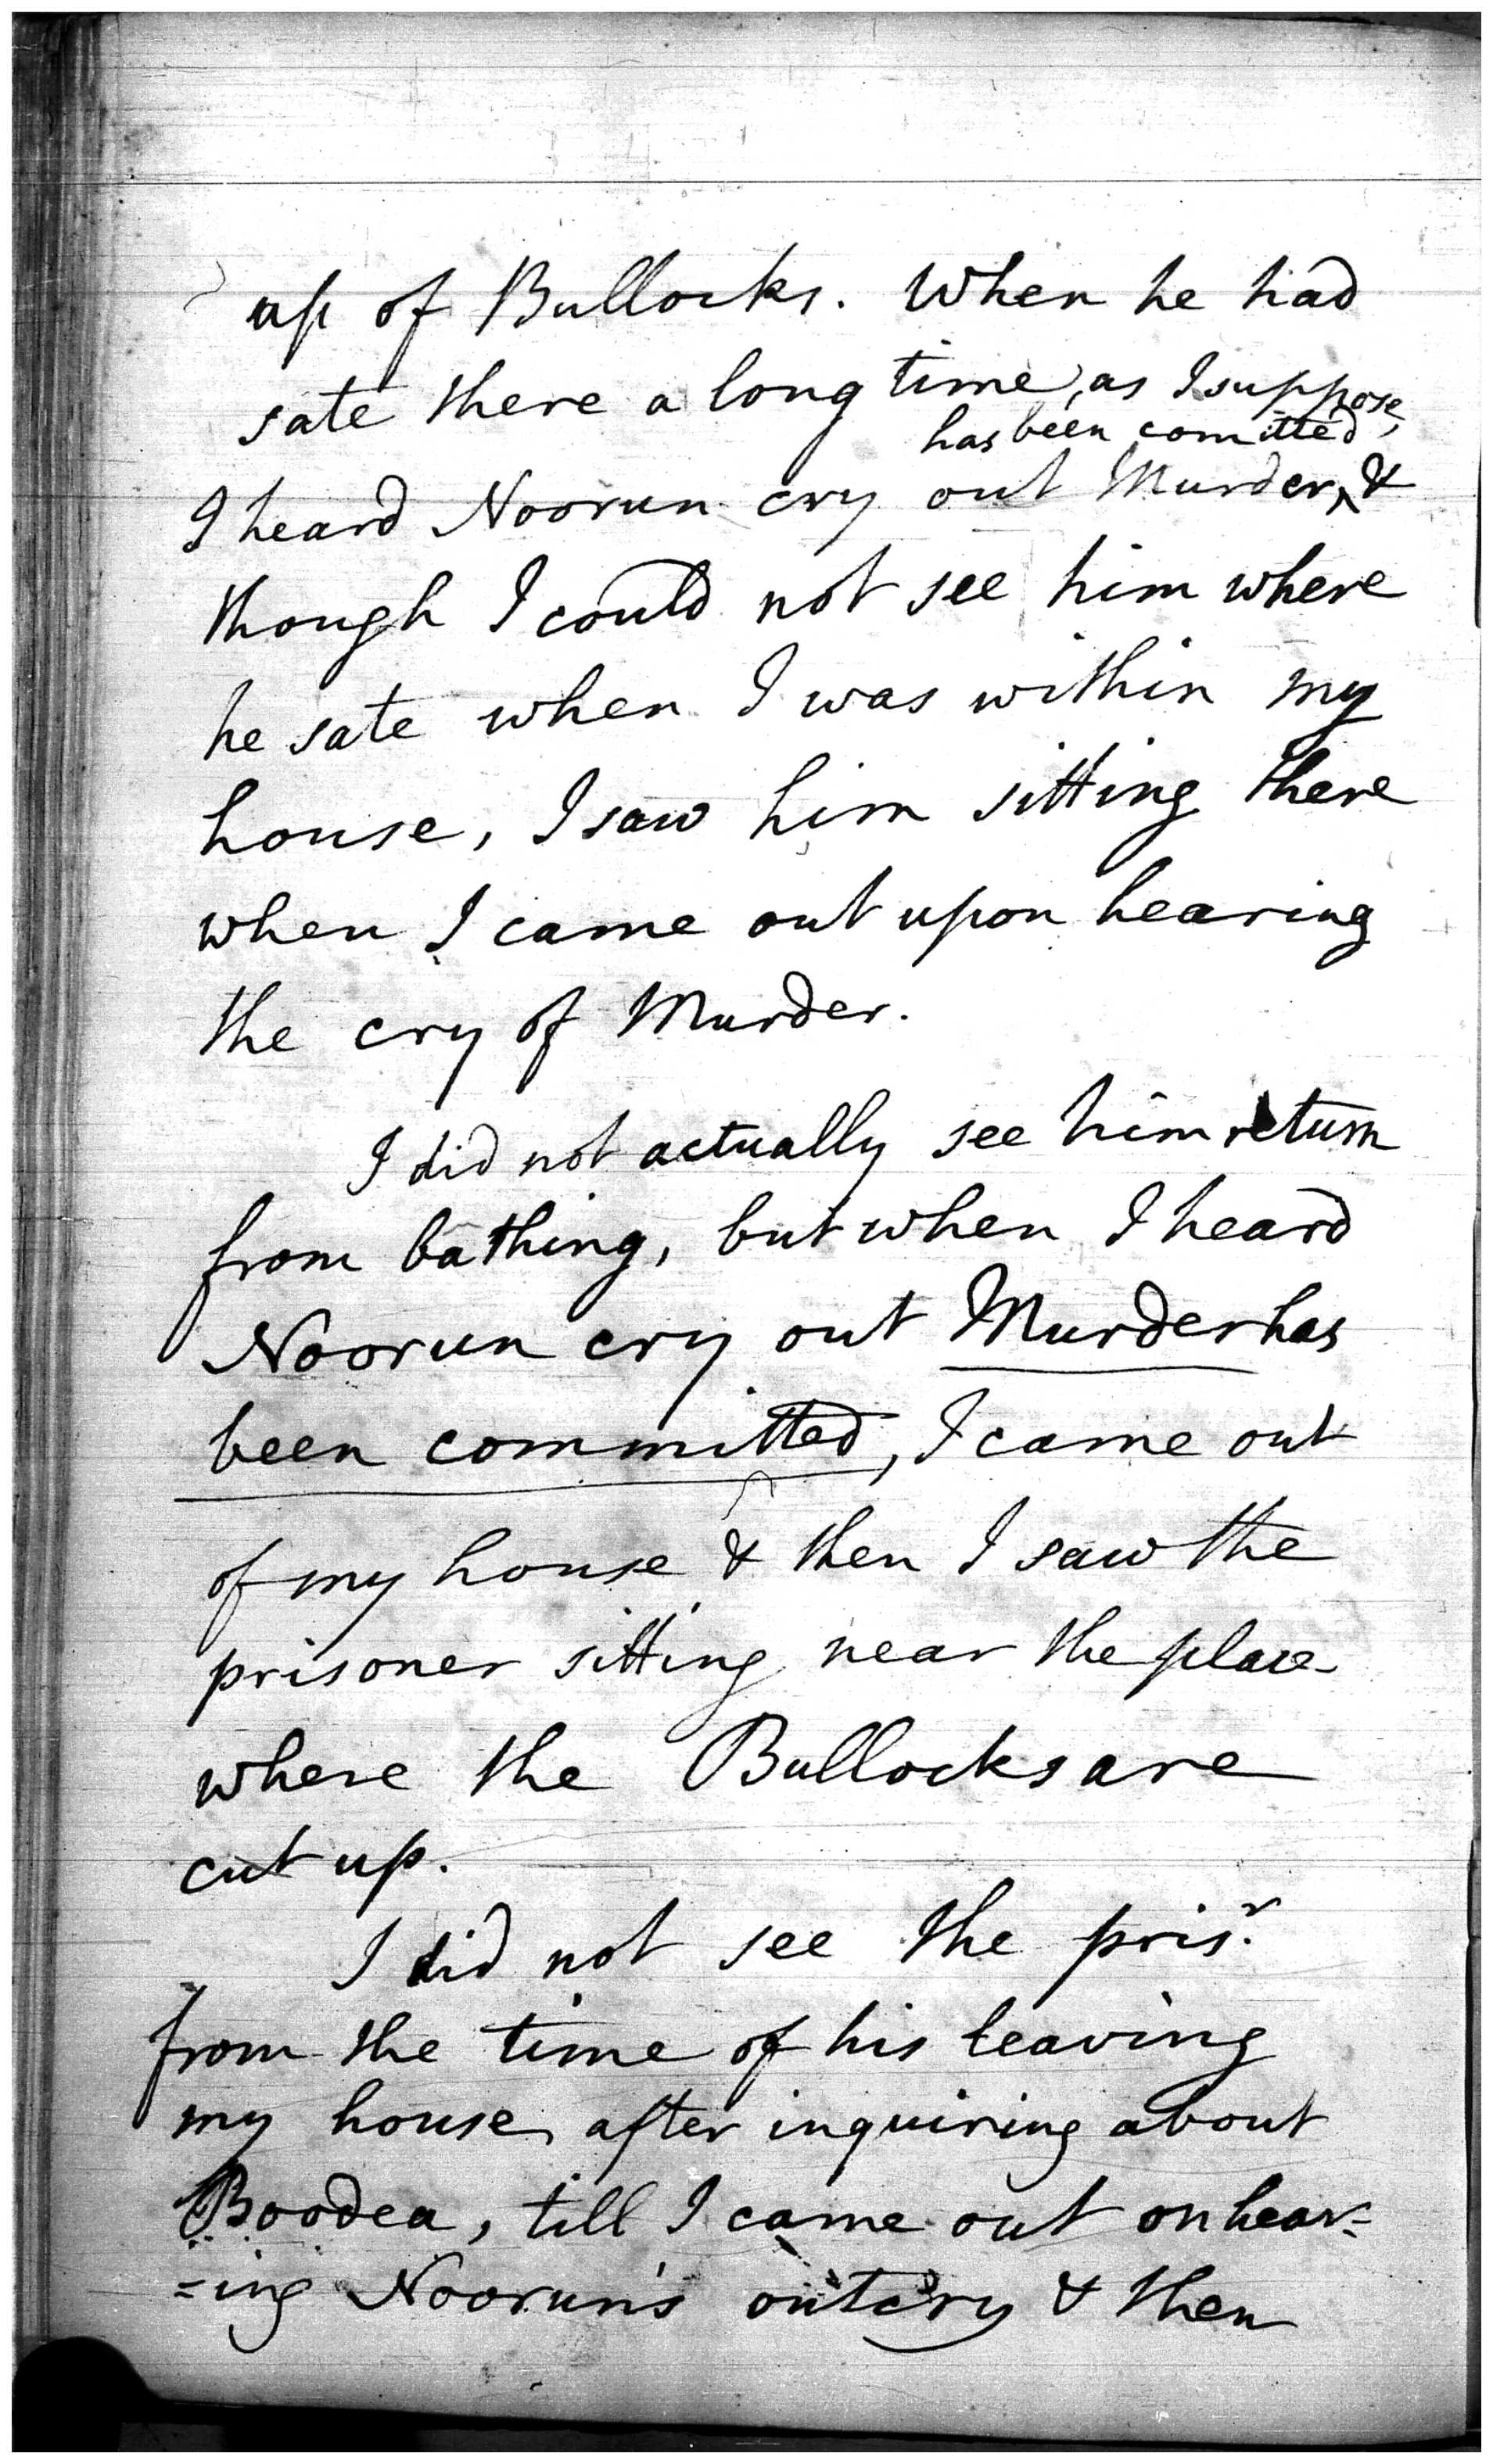 up of Bullocks. When he had
sate there a long time, as I suppose,
has been comitted
I heard Noorun cry out Murder, &
though I could not see him where
he sate when I was within my
house, I saw him sitting there
when I came out upon hearing
the cry of Murder.
I did not actually see him return
from bathing, but when I heard
Noorun cry out Murder has
been committed, I came out
of my house & then I saw the
prisoner sitting near the place
where the Bullocks are
cut up.
I did not see the prisr.
from the time of his leaving
my house after inquiring about
Boodea, till I came out on hear=
=ing Noorun's outcry & then